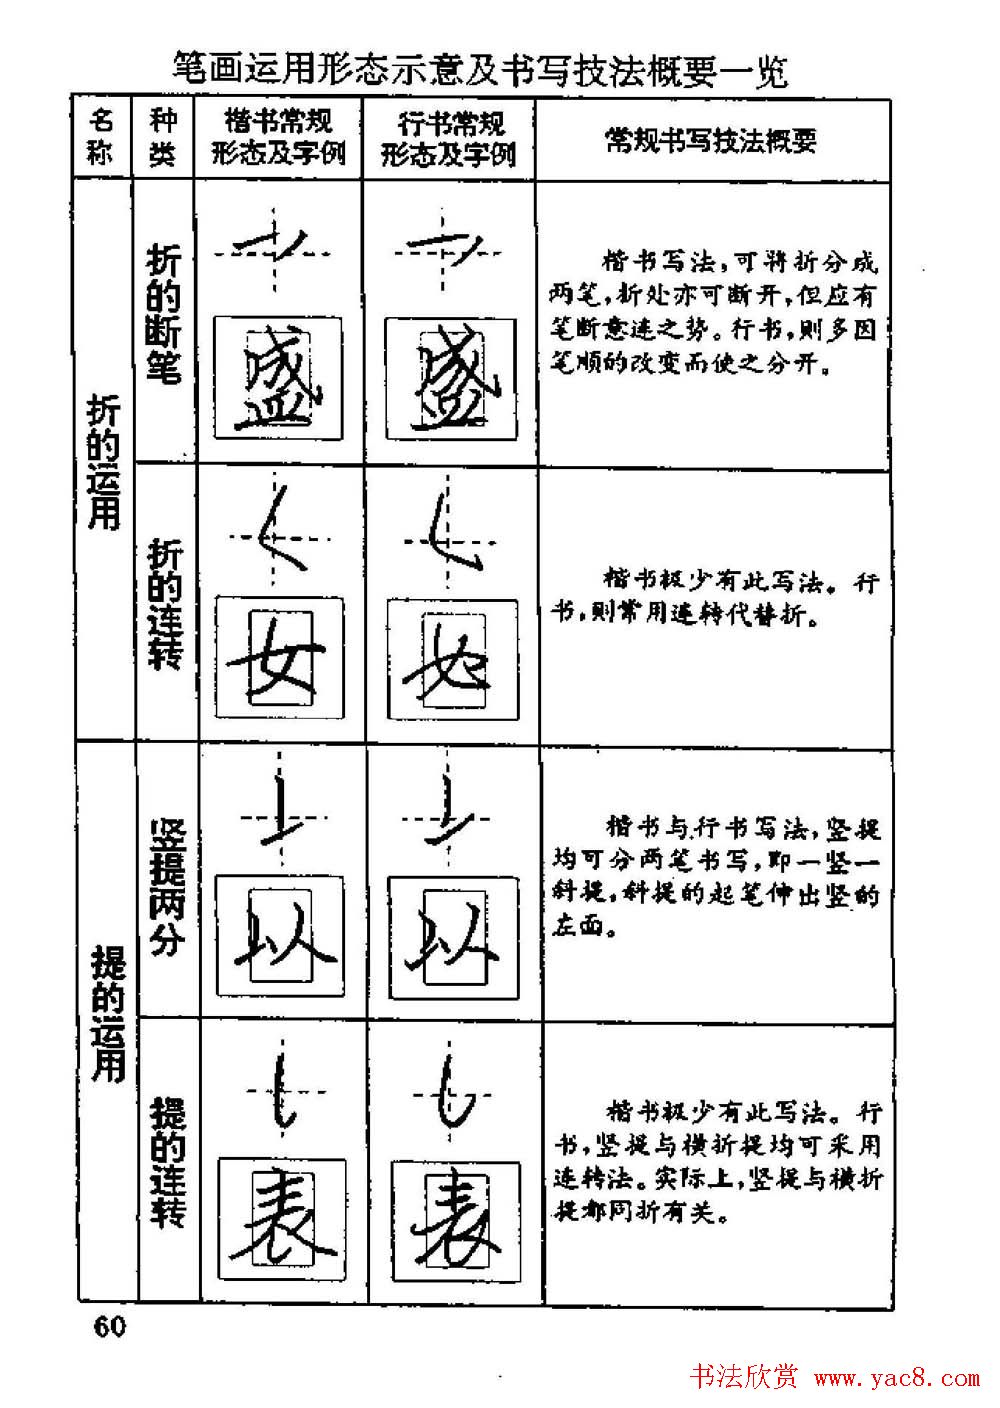 笔画运用形态示意及书写技法概要一览
名称
种类
楷书常规
形态及字例
行书常规
形态及字例
常规书写技法概要
折的运用
折的断笔
盛
盛
楷书写法,可将折分成
两笔,折处亦可断开,但应有
笔断意连之势。行书,则多因
笔顺的改变而使之分开。
折的连转
女
女
楷书极少有此写法。行
书,则常用连转代替折。
提的运用
竖提两分
以
以
楷书与行书写法,竖提
均可分两笔书写,即一竖一
斜提,斜提的起笔伸出竖的
左面。
提的连转
表
表
楷书极少有此写法。行
书,竖提与横折提均可采用
连转法。实际上,竖提与横折
提都同折有关。
60
书法欣赏 www.yac8.com